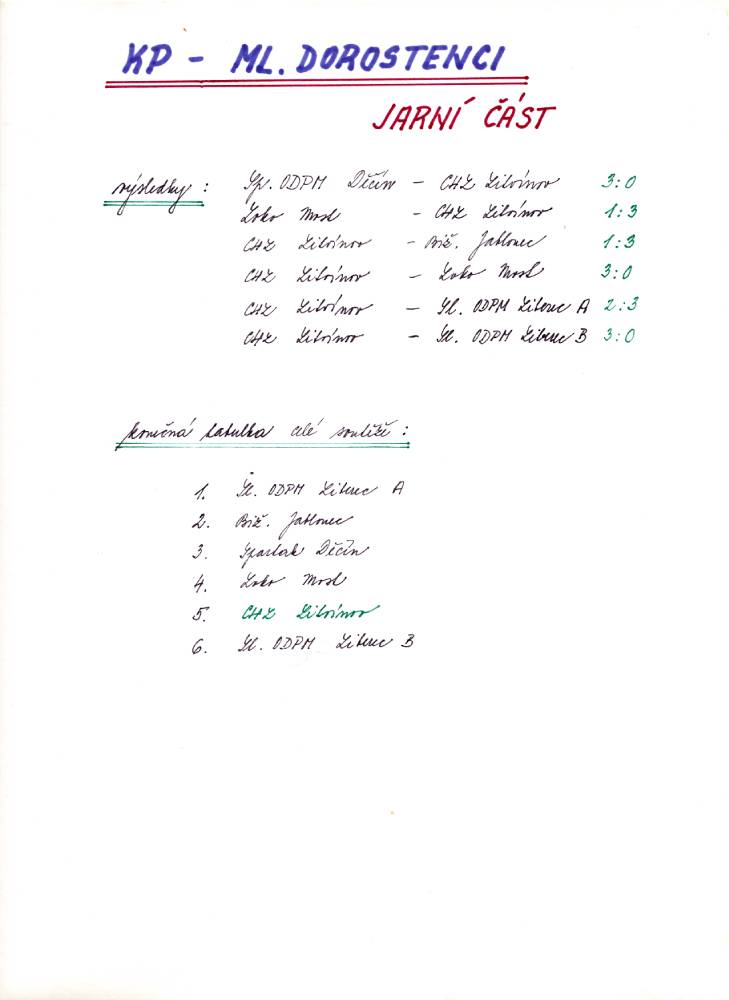 KP - ML. DOROSTENCI
JARNÍ ČÁST
výsledky : Sp. ODPM Děčín - CHZ Litvínov 3:0
Loko Most - CHZ Litvínov 1:3
CHZ Litvínov - Biž. Jablonec 1:3
CHZ Litvínov - Loko Most 3:0
CHZ Litvínov - Sl. ODPM Liberec A 2:3
CHZ Litvínov - Sl. ODPM Liberec B 3:0
konečná tabulka celé soutěže :
1. Sl. ODPM Liberec A
2. Biž. Jablonec
3. Spartak Děčín
4. Loko Most
5. CHZ Litvínov
6. Sl. ODPM Liberec B